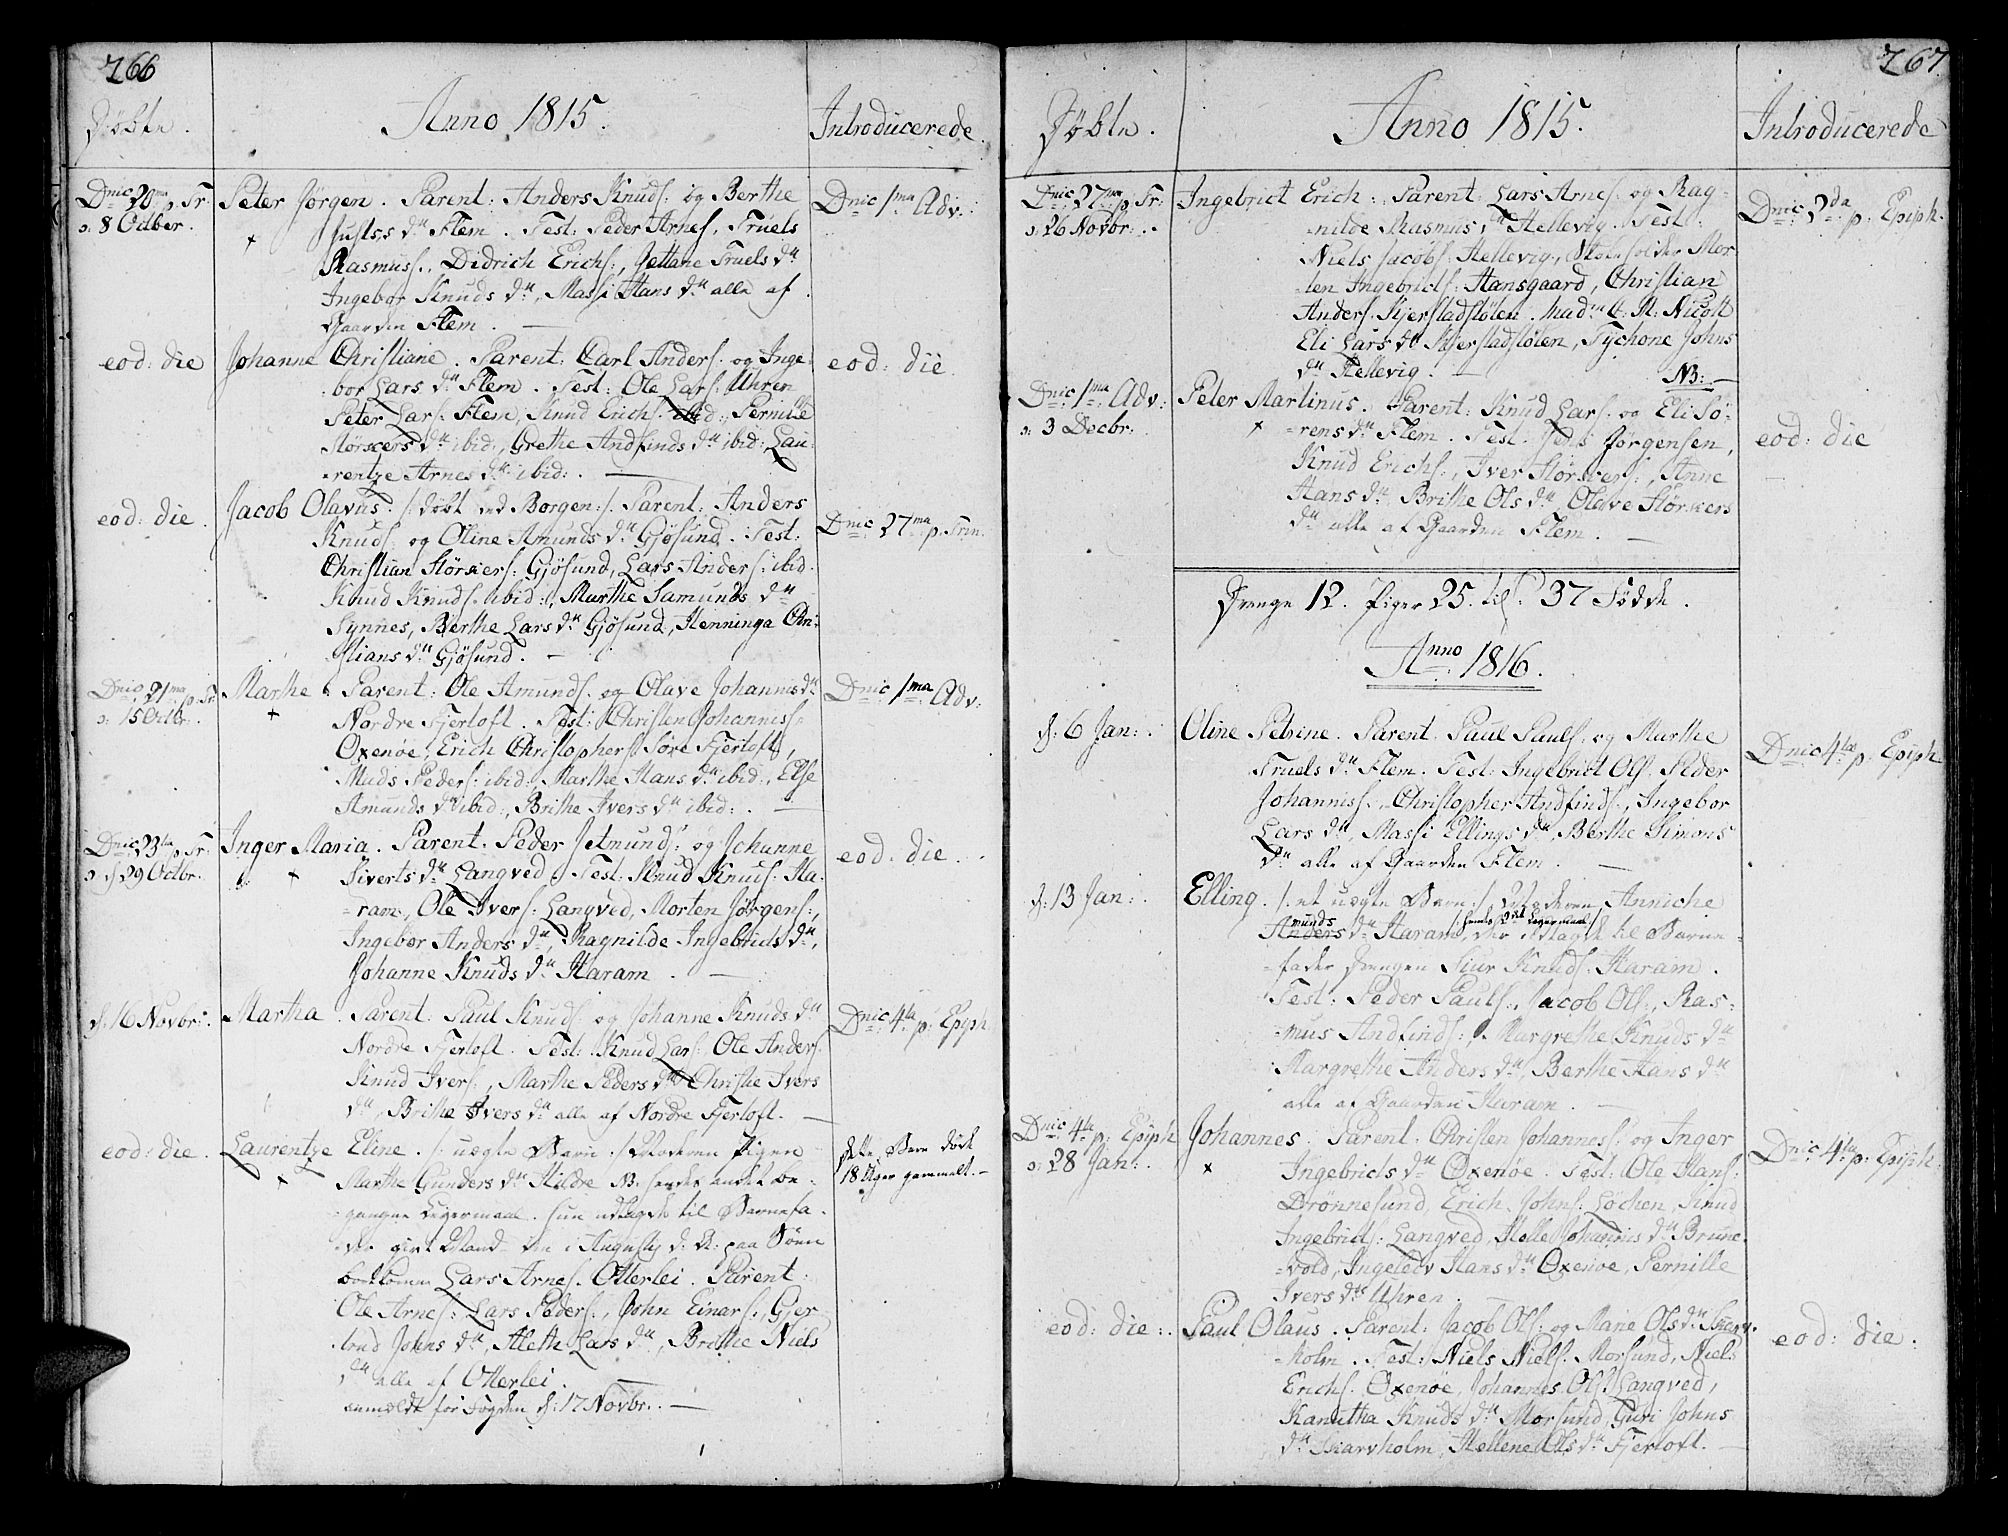 266
Døbte.
Anno 1815.
Introducerede.
Dnic 20ma p. Tr:
ɔ: 8 Octber.
Peter Jørgen. Parent: Anders Knuds: og Berthe
Justss dtr Flem. Test: Peder Arnes, Truels
Rasmuss:, Didrich Erichs:, Jettane Truels dtr
Ingebor Knuds dtr, Massi Hans dtr alle af
Gaarden Flem.
Dnic 1ma Adv:
eod: die
Johanne Christiane. Parent: Carl Anders: og Inge-
bor Lars dtr Flem. Test: Ole Lars: Uhren
Peter Lars: Flem, Knud Erichs: ibid: Pernille
Størkers dtr ibid:, Grethe Andfinds dtr ibid: Lau-
rentze Arnes dtr ibid:.
eod: die.
eod: die.
Jacob Olavus. /: døbt ved Borgen:/. Parent: Anders
Knuds: og Oline Amunds dtr Gjøsund. Test:
Christian Størkers: Gjøsund, Lars Anders: ibid.
Knud Knuds: ibid:, Marthe Samunds dtr
Synnes, Berthe Lars dtr Gjøsund, Henninga Chri-
stians dtr Gjøsund.
Dnic 27ma p. Trin.
Dnic 21ma p. Tr
ɔ: 15 Octbr.
Marthe. Parent: Ole Amunds: og Olave Johannis dtr
Nordre Fjertoft. Test: Christen Johanniss:
Oxenøe, Erich Christophers: Søre Fjertoft,
Mads Peders: ibid:, Marthe Hans dtr ibid:, Else
Amunds dtr ibid:, Brithe Ivers dtr ibid:.
Dnic 1ma Adv:
Dnic 23tia p. Tr:
ɔ: 29 Octbr.
Inger Maria. Parent: Peder Jetmunds: og Johanne
Siverts dtr Langved. Test: Knud Knuds: Ha-
ram, Ole Ivers: Langved, Morten Jørgens:,
Ingebor Anders dtr, Ragnilde Ingebricts dtr,
Johanne Knuds dtr Haram.
eod: die.
d: 16 Novbr:.
Martha. Parent: Paul Knuds: og Johanne Knuds dtr
Nordre Fjertoft. Test: Knud Lars: Ole Anders:
Knud Ivers:, Marthe Peders dtr Christhe Ivers
dtr, Brithe Ivers dtr alle af Nordre Fjertoft.
Dnic 4ta p: Epiph:
eod: die.
Laurentze Eline. /: uægte Barn:/ Moderen Pigen
Marthe Gunders dtr Hildre NB. hendes andet be-
gangne Legermaal. hun udlagde til Barnefa-
der givt Mand i Augusty paa Søen
Lars Arnes: Otterlei. Parent:
Ole Arnes:, Lars Peders:, John Einars:, Gjer-
trud Johns dtr, Aleth Lars dtr, Brithe Niels
dtr alle af Otterlei.
anmeldt for Fogden d: 17 Novbr:.
dette Barn døde
18 Uger gammelt.
267
Døbte.
Anno 1815.
Introducerede
Dnic 27ma p: Tr:
ɔ: 26 Novbr:.
Ingebrict Erich. Parent: Lars Arnes: og Rag-
nilde Rasmus dtr Hellevig. Test:
Niels Jacobs: Hellevig, Skoleholder Mor-
ten Ingebricts: Hansgaard, Christian
Anders: Kjerstadstølen. Madme C. M: Nicolt
Eli Lars dtr Kjerstadstølen, Tychone Johns
dtr Hellevig.
Dnic 2da p. Epiph:
NB:
Dnic 1ma Adv:
ɔ: 3 Decbr:
Peter Martinus. Parent: Knud Lars: og Eli Sø-
rens dtr Flem. Test: Jens Jørgensen,
Knud Erichs:, Iver Størkers:, Anne
Hans dtr, Brithe Ols dtr, Olave Størkers
dtr alle af Gaarden Flem.
eod: die
Drenge 12. Piger 25. til: 37 Fødde.
Anno 1816.
d: 6 Jan:.
Oline Petrine. Parent: Paul Pauls: og Marthe
Truels dtr Flem. Test: Ingebrict Ols: Peder
Johanniss:, Christopher Andfinds:, Ingebor
Lars dtr, Massi Ellings dtr, Berthe Simons
dtr alle af Gaarden Flem.
Dnic 4ta p. Epiph:
d: 13 Jan:.
Elling. /: et uægte Barn:/ Moderen Anniche
Anders
munds
dtr Haram /hendes 2det Legermaal/, der udlagde til Barne-
fader Drengen Siur Knuds: Haram.
Test: Peder Pauls:, Jacob Ols:, Ras-
mus Andfinds:, Margrethe Knuds dtr
Margrethe Anders dtr, Berthe Hans dtr
alle af Gaarden Haram.
Dnic 4ta p: Epiph
ɔ: 28 Jan:.
Johannes. Parent: Christen Johanness: og Inger
Ingebricts dtr Oxenøe. Test: Ole Hans:
Drønnesund, Erich Johns: Løchen, Knud
Ingebricts: Langved, Helle Johannis dtr Brune-
vold, Ingeleev Hans dtr Oxenøe, Pernille
Ivers dtr Uhren.
Dnic 4ta p. Epiph:
eod: die:.
Paul Olaus. Parent: Jacob Ols: og Marie Ols dtr Skarv-
holm. Test: Niels Niels: Morsund, Niels
Erichs: Oxenøe, Johannes Ols: Langved,
Kanutha Knuds dtr Morsund, Guri Johns
dtr Skarvholm, Hellene Ols dtr Fjertoft.
eod: die.